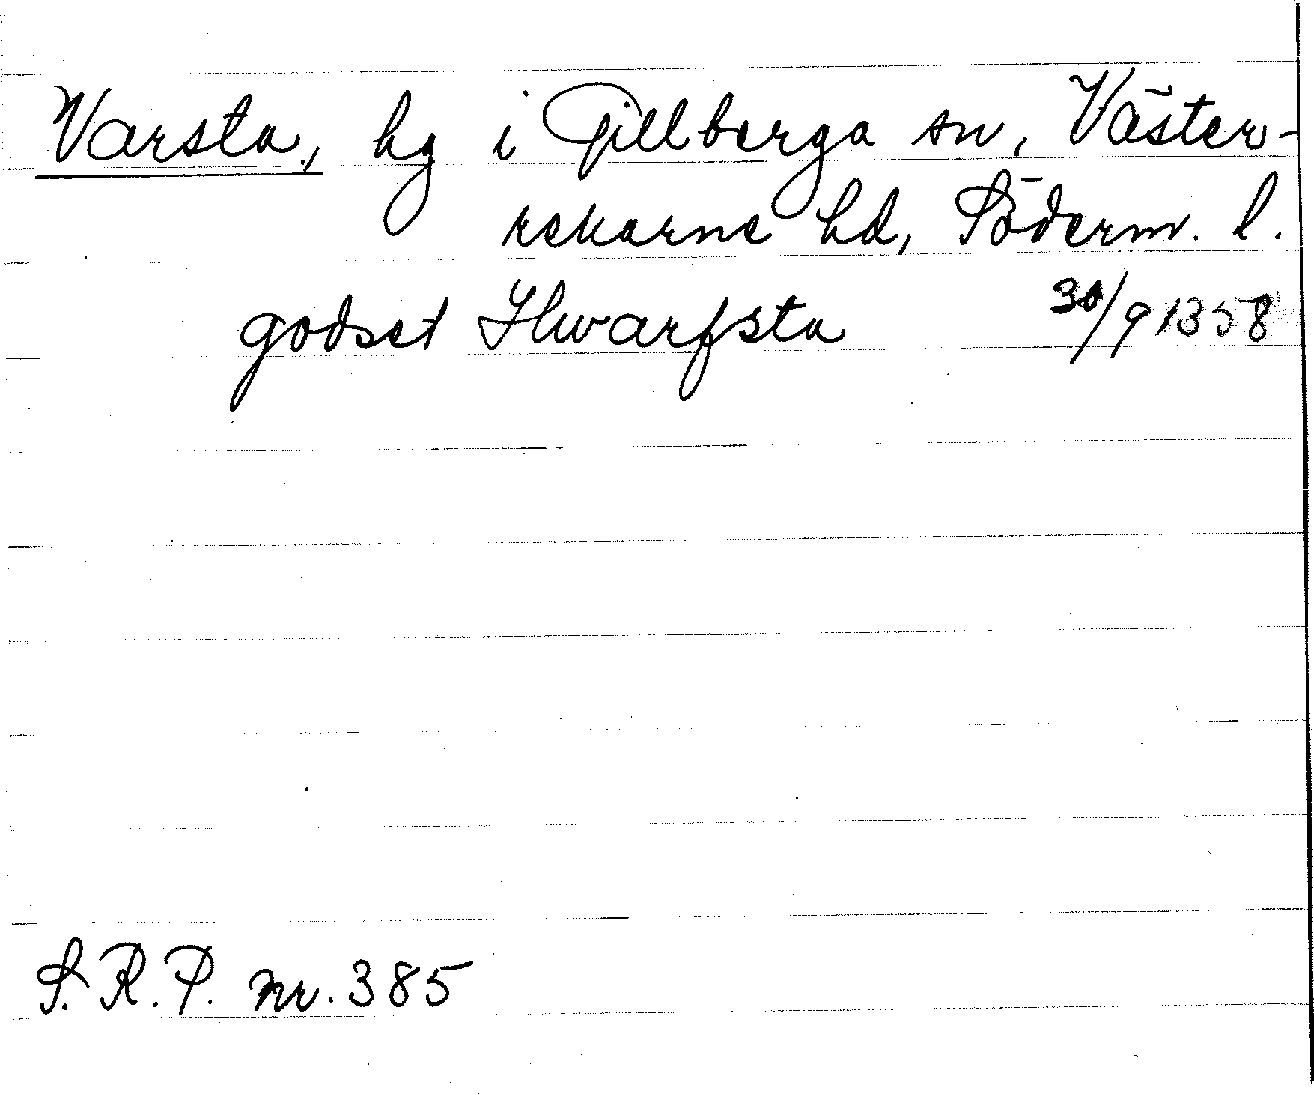 Varsta, hg i Gillberga sn, Väster-
rekarne hd, Söderm. l.
godset Hwarfsta 30/9 1358
S.R.P. nr. 385